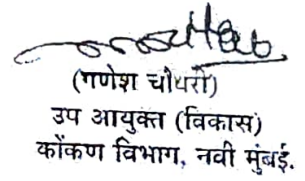 (गणेश चौधरी)
उप आयुक्त (विकास)
कोंकण विभाग, नवी मुंबई.